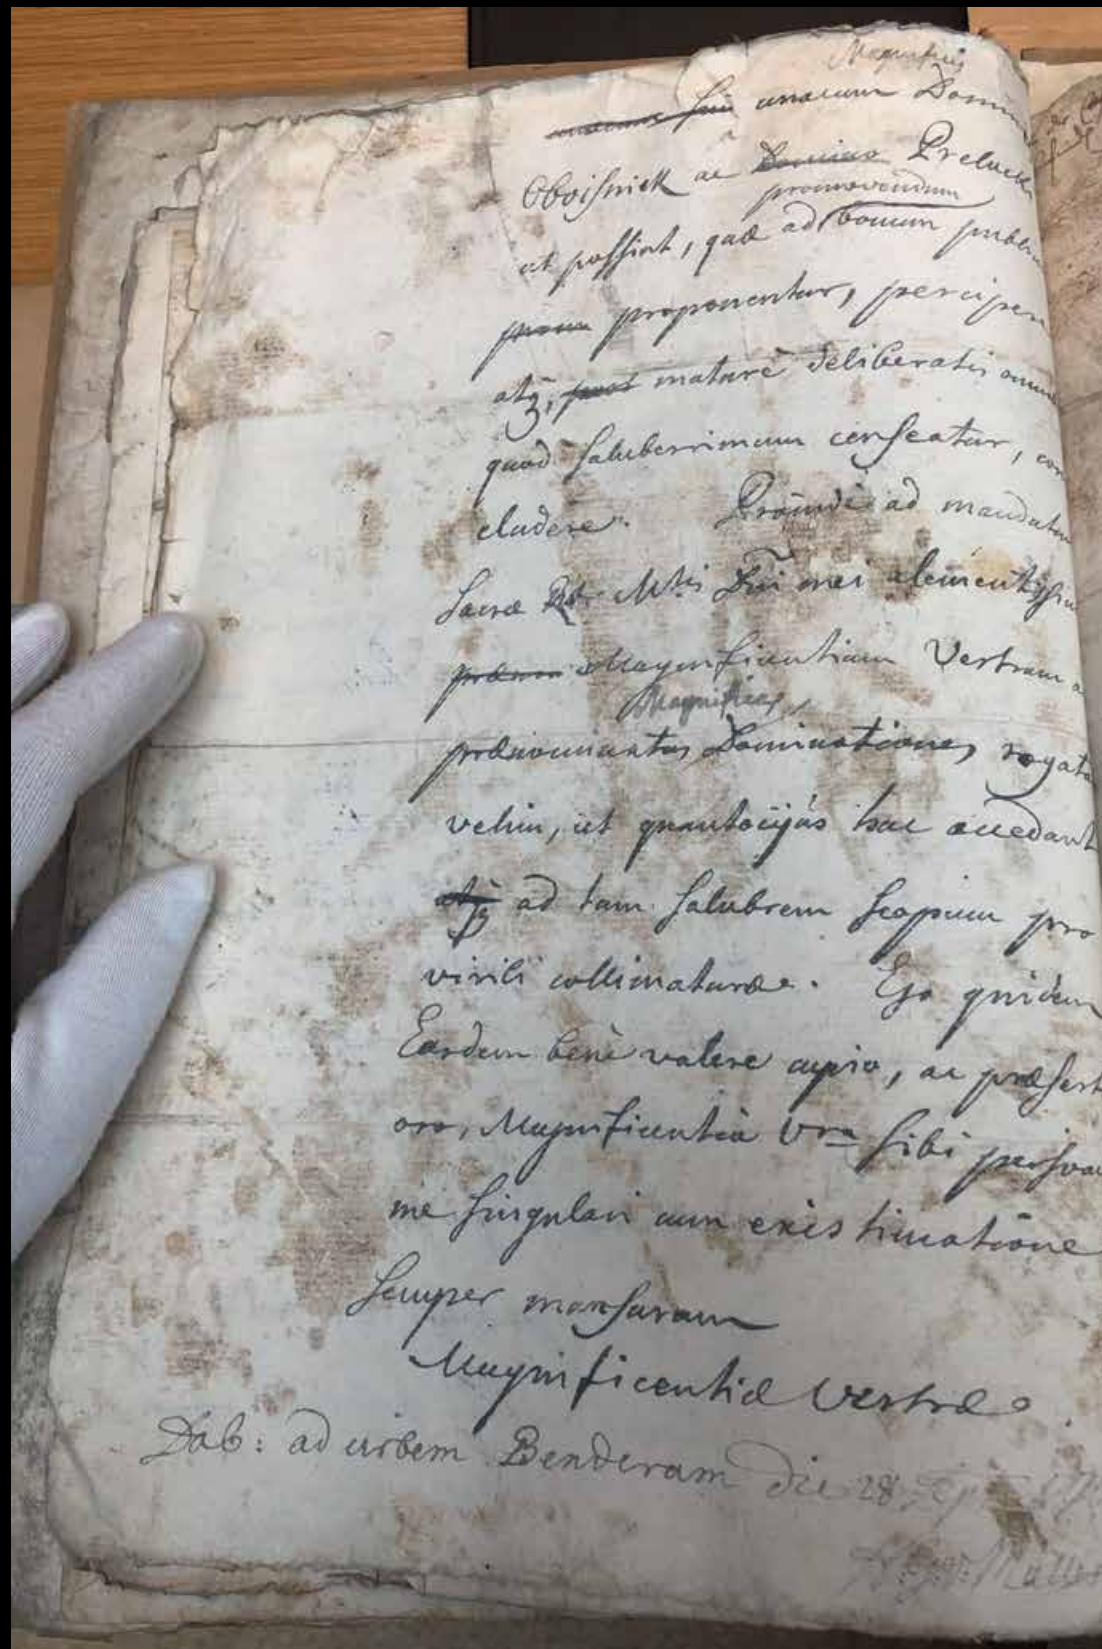 Magnificis
unacum Domin
Oboisniek ac Domino Preluck
promovendum
ut possint, quæ ad bonum publi
proponentur, percipere
atq;, post maturè deliberatis omni
quod saluberrimum censeatur, con
cludere. Proinde ad mandatum
Sacræ Mtis Dni mei clementissi
Magnificentiam Vestram a
Magnificas
prænominatas Dominationes rogata
velim, ut quantocijùs huc accedant
atq; ad tam salubrem scopum pro
virili collimaturæ. Ego quidem
Easdem bene valere cupio, ac præsert
oro, Magnificentia Vra sibi persva
me singulari cum existimatione
semper mansurum
Magnificentiæ Vestræ.
Dab: ad urbem Benderam die 28